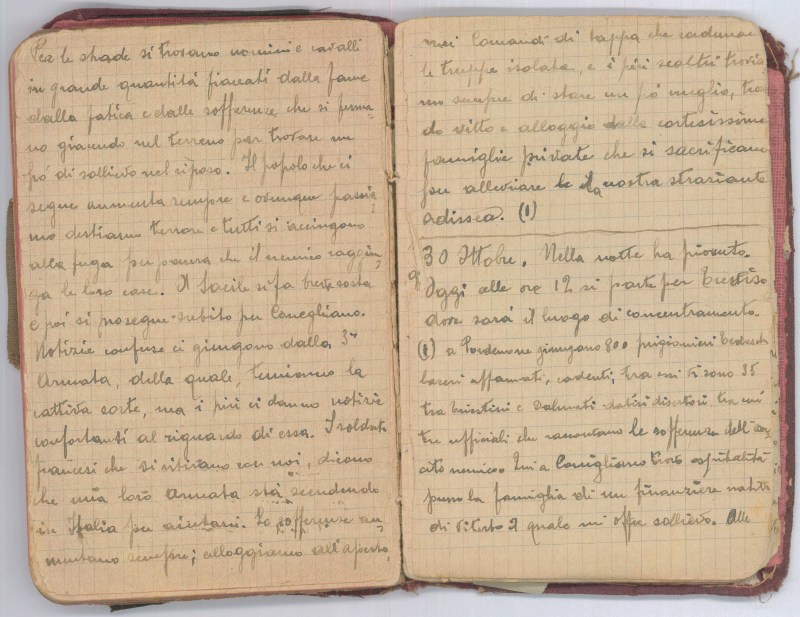 Per le strade si trovano uomini e cavalli
in grande quantità fiaccati dalla fame
dalla fatica e dalle sofferenze che si ferma-
no giacendo nel terreno per trovare un
pó di sollievo nel riposo. Il popolo che ci
segue aumenta sempre e ovunque passia-
mo destiamo terrore e tutti si accingono
alla fuga per paura che il nemico raggiun-
ga le loro case. A Sacile si fa breve sosta
e poi si prosegue subito per Conegliano.
Notizie confuse ci giungono dalla 3ª
Armata, della quale, temiamo la
cattiva sorte, ma i più ci danno notizie
confortanti al riguardo di essa. I soldati
francesi che si ritirano con noi, dicono
che una loro Armata stà scendendo
in Italia per aiutarci. Le sofferenze au-
mentano sempre; alloggiamo all'aperto,
Comandi di tappa che radunano
le truppe isolate, e i più scaltri trovia
mo sempre di stare un pó meglio,
do vitto e alloggio dalle cortesissime
famiglie private che si sacrificano
per alleviare la nostra straziante
odissea. (1)
30 Ottobre. Nella notte ha piovuto.
Oggi alle ore 12 si parte per Treviso
dove sará il luogo di concentramento.
(1) a Pordenone giungono 800 prigionieri tedeschi
laceri affamati, cadenti, tra cui vi sono 35
tra triestini e dalmati datisi disertori, tra cui
tre ufficiali che raccontano le sofferenze dell'eser-
cito nemico. Qui a Conegliano trovo ospitalità
presso la famiglia di un finanziere nativo
di Viterbo il quale mi offre sollievo. Alle